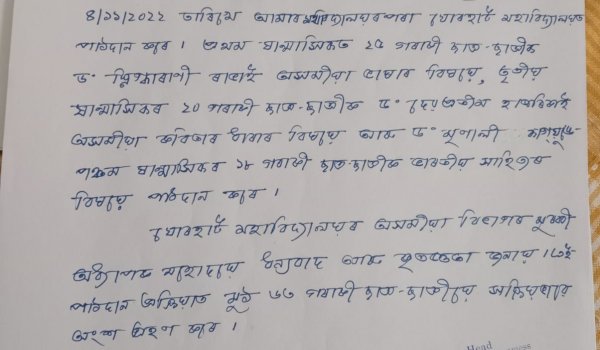 ৪/১১/২০২২ তাৰিখে আমাৰ মহাবিদ্যালয়ৰপৰা যোৰহাট মহাবিদ্যালয়ত
পাঠদান কৰে । প্ৰথম ষাণ্মাসিকত ২৫ গৰাকী ছাত্ৰ-ছাত্ৰীক
ড° ৰাভাই অসমীয়া ভাষাৰ বিষয়ে, তৃতীয়
ষাণ্মাসিকৰ ২০ গৰাকী ছাত্ৰ-ছাত্ৰীক ড°
অসমীয়া কবিতাৰ ধাৰাৰ বিষয়ে আৰু ড° মৃণালী
পঞ্চম ষাণ্মাসিকৰ ১৮ গৰাকী ছাত্ৰ-ছাত্ৰীক ভাৰতীয় সাহিত্যৰ
বিষয়ে পাঠদান কৰে ।
যোৰহাট মহাবিদ্যালয়ৰ অসমীয়া বিভাগৰ মুৰব্বী
অধ্যাপক মহোদয়ে ধন্যবাদ আৰু কৃতজ্ঞতা জনায় । এই
পাঠদান প্ৰক্ৰিয়াত মুঠ ৬৩ গৰাকী ছাত্ৰ-ছাত্ৰীয়ে সক্ৰিয়ভাৱে
অংশ গ্ৰহণ কৰে ।
Head